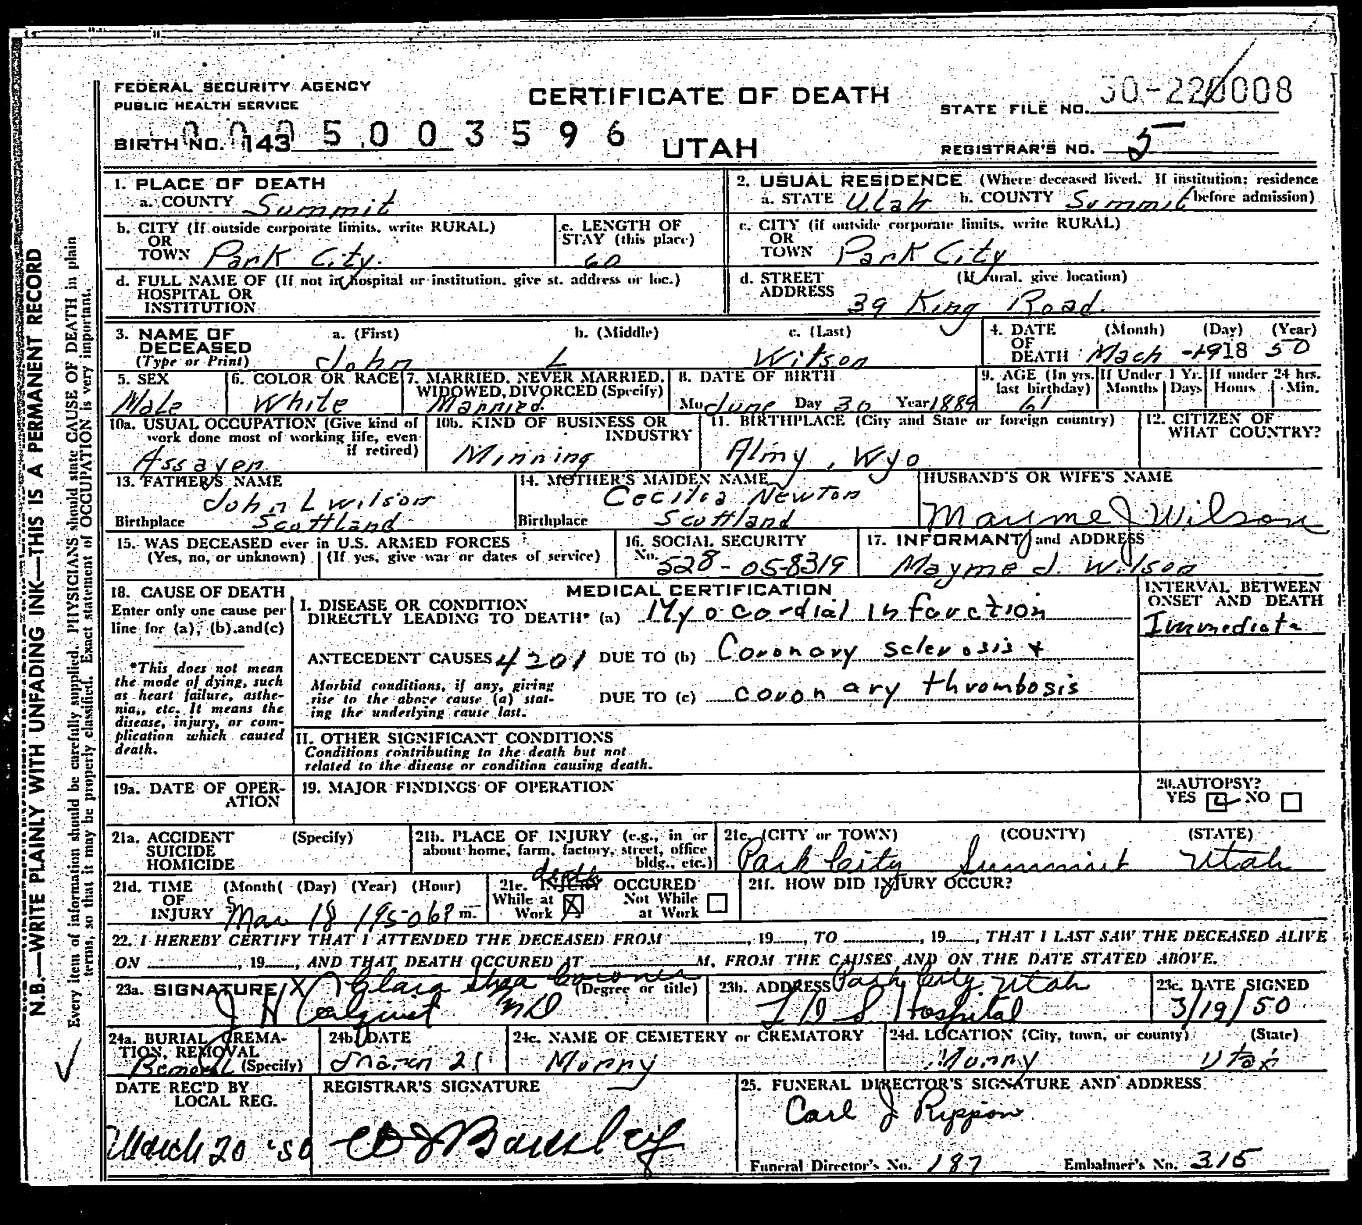 FEDERAL SECURITY AGENCY
PUBLIC HEALTH SERVICE
CERTIFICATE OF DEATH
STATE FILE NO.
BIRTH NO. 143 5003596
UTAH
REGISTRAR'S NO. 5
N.B.—WRITE PLAINLY WITH UNFADING INK—THIS IS A PERMANENT RECORD
Every item of information should be carefully supplied. PHYSICIANS should state CAUSE OF DEATH in plain
terms, so that it may be properly classified. Exact statement of OCCUPATION is very important.
1. PLACE OF DEATH
a. COUNTY Summit
2. USUAL RESIDENCE (Where deceased lived. If institution: residence
a. STATE Utah b. COUNTY Summit before admission)
b. CITY (If outside corporate limits, write RURAL)
OR
TOWN Park City.
c. LENGTH OF
STAY (this place)
60
c. CITY (if outside corporate limits, write RURAL)
OR
TOWN Park City
d. FULL NAME OF (If not in hospital or institution, give st. address or loc.)
HOSPITAL OR
INSTITUTION
d. STREET (If rural, give location)
ADDRESS
39 King Road.
3. NAME OF a. (First) b. (Middle) c. (Last)
DECEASED
(Type or Print) John L Wilson
4. DATE (Month) (Day) (Year)
OF
DEATH Mach 18 50
5. SEX
Male
6. COLOR OR RACE
White
7. MARRIED, NEVER MARRIED,
WIDOWED, DIVORCED (Specify)
Married.
8. DATE OF BIRTH
Mo June Day 30 Year 1889
9. AGE (In yrs. If Under 1 Yr. If under 24 hrs.
last birthday) Months Days Hours Min.
61
10a. USUAL OCCUPATION (Give kind of
work done most of working life, even
if retired)
Assayer
10b. KIND OF BUSINESS OR
INDUSTRY
Minning
11. BIRTHPLACE (City and State or foreign country)
Almy, Wyo
12. CITIZEN OF
WHAT COUNTRY?
13. FATHER'S NAME
John L Wilson
Birthplace Scottland
14. MOTHER'S MAIDEN NAME
Cecilia Newton
Birthplace Scottland
HUSBAND'S OR WIFE'S NAME
Mayme J Wilson
15. WAS DECEASED ever in U.S. ARMED FORCES?
(Yes, no, or unknown) (If yes, give war or dates of service)
16. SOCIAL SECURITY
No. 528-05-8319
17. INFORMANT and ADDRESS
Mayme J. Wilson
18. CAUSE OF DEATH
Enter only one cause per
line for (a), (b).and(c)
*This does not mean
the mode of dying, such
as heart failure, asthe-
nia, etc. It means the
disease, injury, or com-
plication which caused
death.
MEDICAL CERTIFICATION
I. DISEASE OR CONDITION
DIRECTLY LEADING TO DEATH* (a) Myocordial infarction
ANTECEDENT CAUSES 4201 DUE TO (b) Coronary sclerosis +
Morbid conditions, if any, giving
rise to the above cause (a) stat-
ing the underlying cause last.
DUE TO (c) coronary thrombosis
INTERVAL BETWEEN
ONSET AND DEATH
Immediate
II. OTHER SIGNIFICANT CONDITIONS
Conditions contributing to the death but not
related to the disease or condition causing death.
19a. DATE OF OPER-
ATION
19. MAJOR FINDINGS OF OPERATION
20. AUTOPSY?
YES NO
21a. ACCIDENT (Specify)
SUICIDE
HOMICIDE
21b. PLACE OF INJURY (e.g., in or
about home, farm, factory, street, office
bldg., etc.)
21c. (CITY or TOWN) (COUNTY) (STATE)
Park City Summit Utah
21d. TIME (Month( (Day) (Year) (Hour)
OF
INJURY Mar 18 1950 m.
21e. INJURY OCCURED
death
While at Not While
Work X at Work
21f. HOW DID INJURY OCCUR?
22. I HEREBY CERTIFY THAT I ATTENDED THE DECEASED FROM , 19 , TO , 19 , THAT I LAST SAW THE DECEASED ALIVE
ON , 19 , AND THAT DEATH OCCURED AT M. FROM THE CAUSES AND ON THE DATE STATED ABOVE.
23a. SIGNATURE (Degree or title)
J H MD
23b. ADDRESS Park City, Utah
L D S Hospital
23c. DATE SIGNED
3/19/50
24a. BURIAL CREMA-
TION, REMOVAL
(Specify)
24b. DATE
24c. NAME OF CEMETERY or CREMATORY
Murry
24d. LOCATION (City, town, or county) (State)
Murry Utah
DATE REC'D BY
LOCAL REG.
March 20 '50
REGISTRAR'S SIGNATURE
25. FUNERAL DIRECTOR'S SIGNATURE AND ADDRESS
Carl J Rippon
Funeral Director's No. 187 Embalmer's No. 315